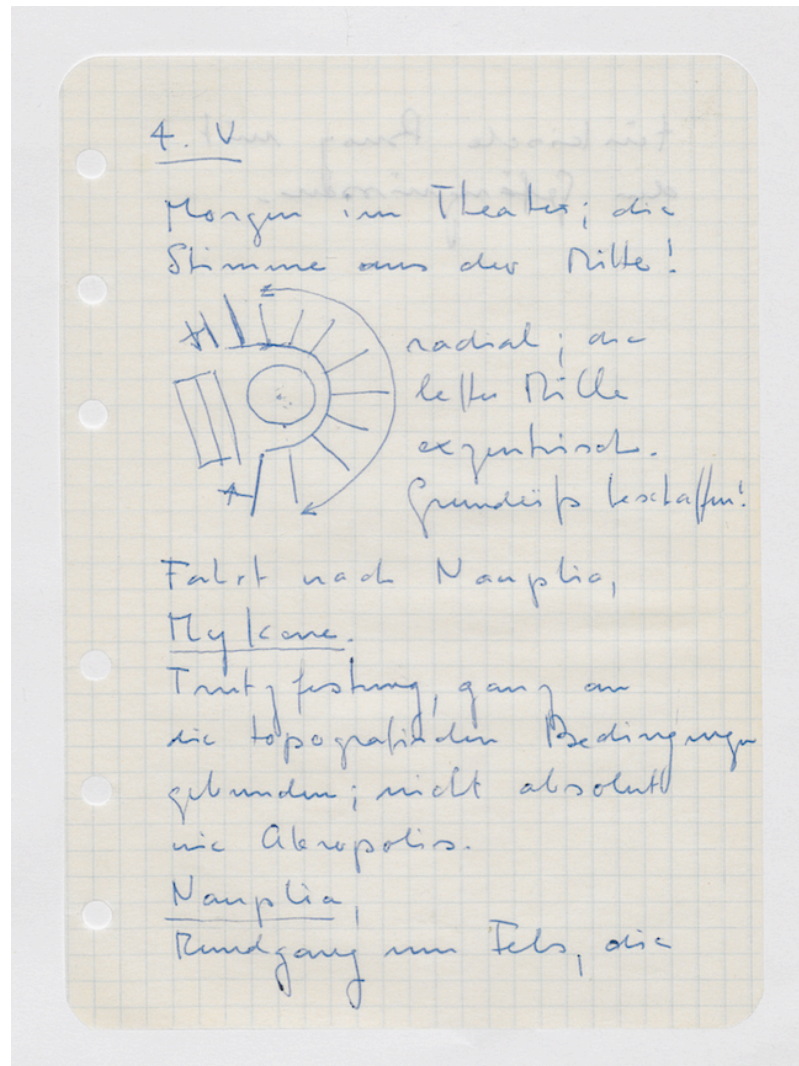 4. V
Morgen im Theater; die
Stimme aus der Mitte!
radial; die
letzte Mitte
exzentrisch.
Grundriss beschaffen!
Fahrt nach Nauplia,
Mykene.
Trutzfestung, ganz an
die topografischen Bedingungen
gebunden; nicht absolut
wie Akropolis.
Nauplia,
Rundgang um Fels, die